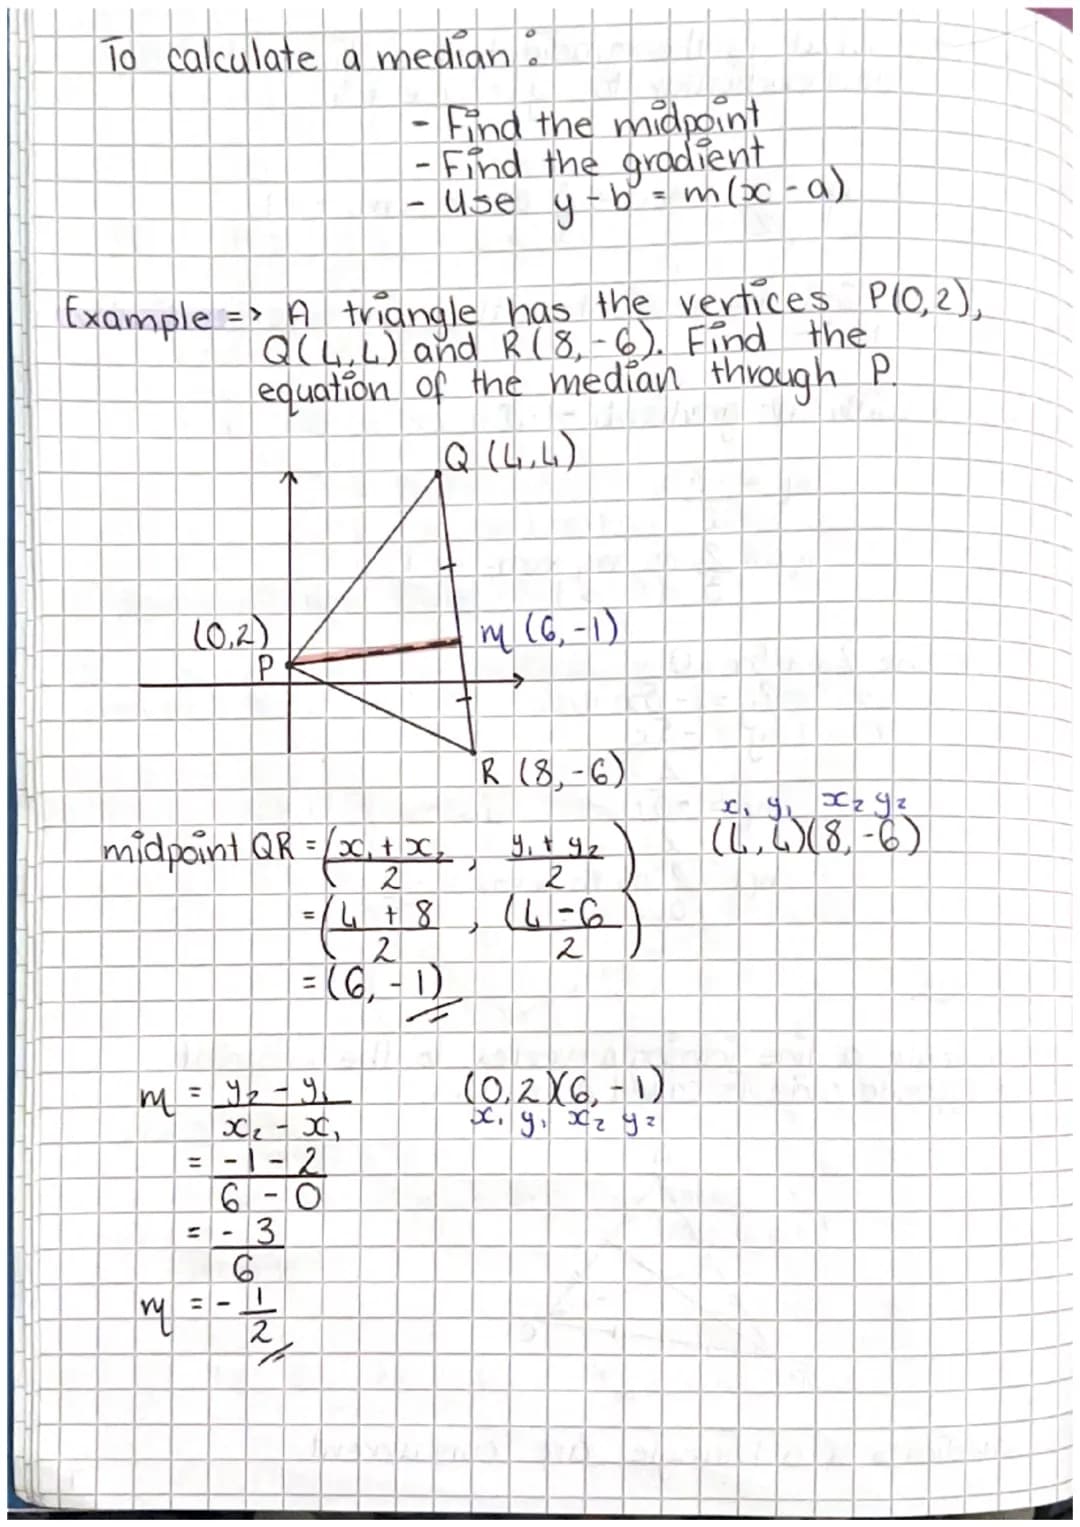 To calculate a median:
- Find the midpoint
- Find the gradient
- Use y - b = m(x - a)
Example => A triangle has the vertices P(0,2),
Q(4,4) and R(8,-6). Find the
equation of the median through P.
Q (4,4)
(0,2)
P
m (6,-1)
R (8,-6)
x₁ y₁ x₂ y₂
midpoint QR = (x₁ + x₂ / 2 , y₁ + y₂ / 2) (4,4)(8,-6)
= (4 + 8 / 2 , (4 - 6 / 2)
= (6, -1)
m = y₂ - y₁ / x₂ - x₁ (0,2)(6,-1)
x₁ y₁ x₂ y₂
= -1 - 2 / 6 - 0
= -3 / 6
m = - 1 / 2